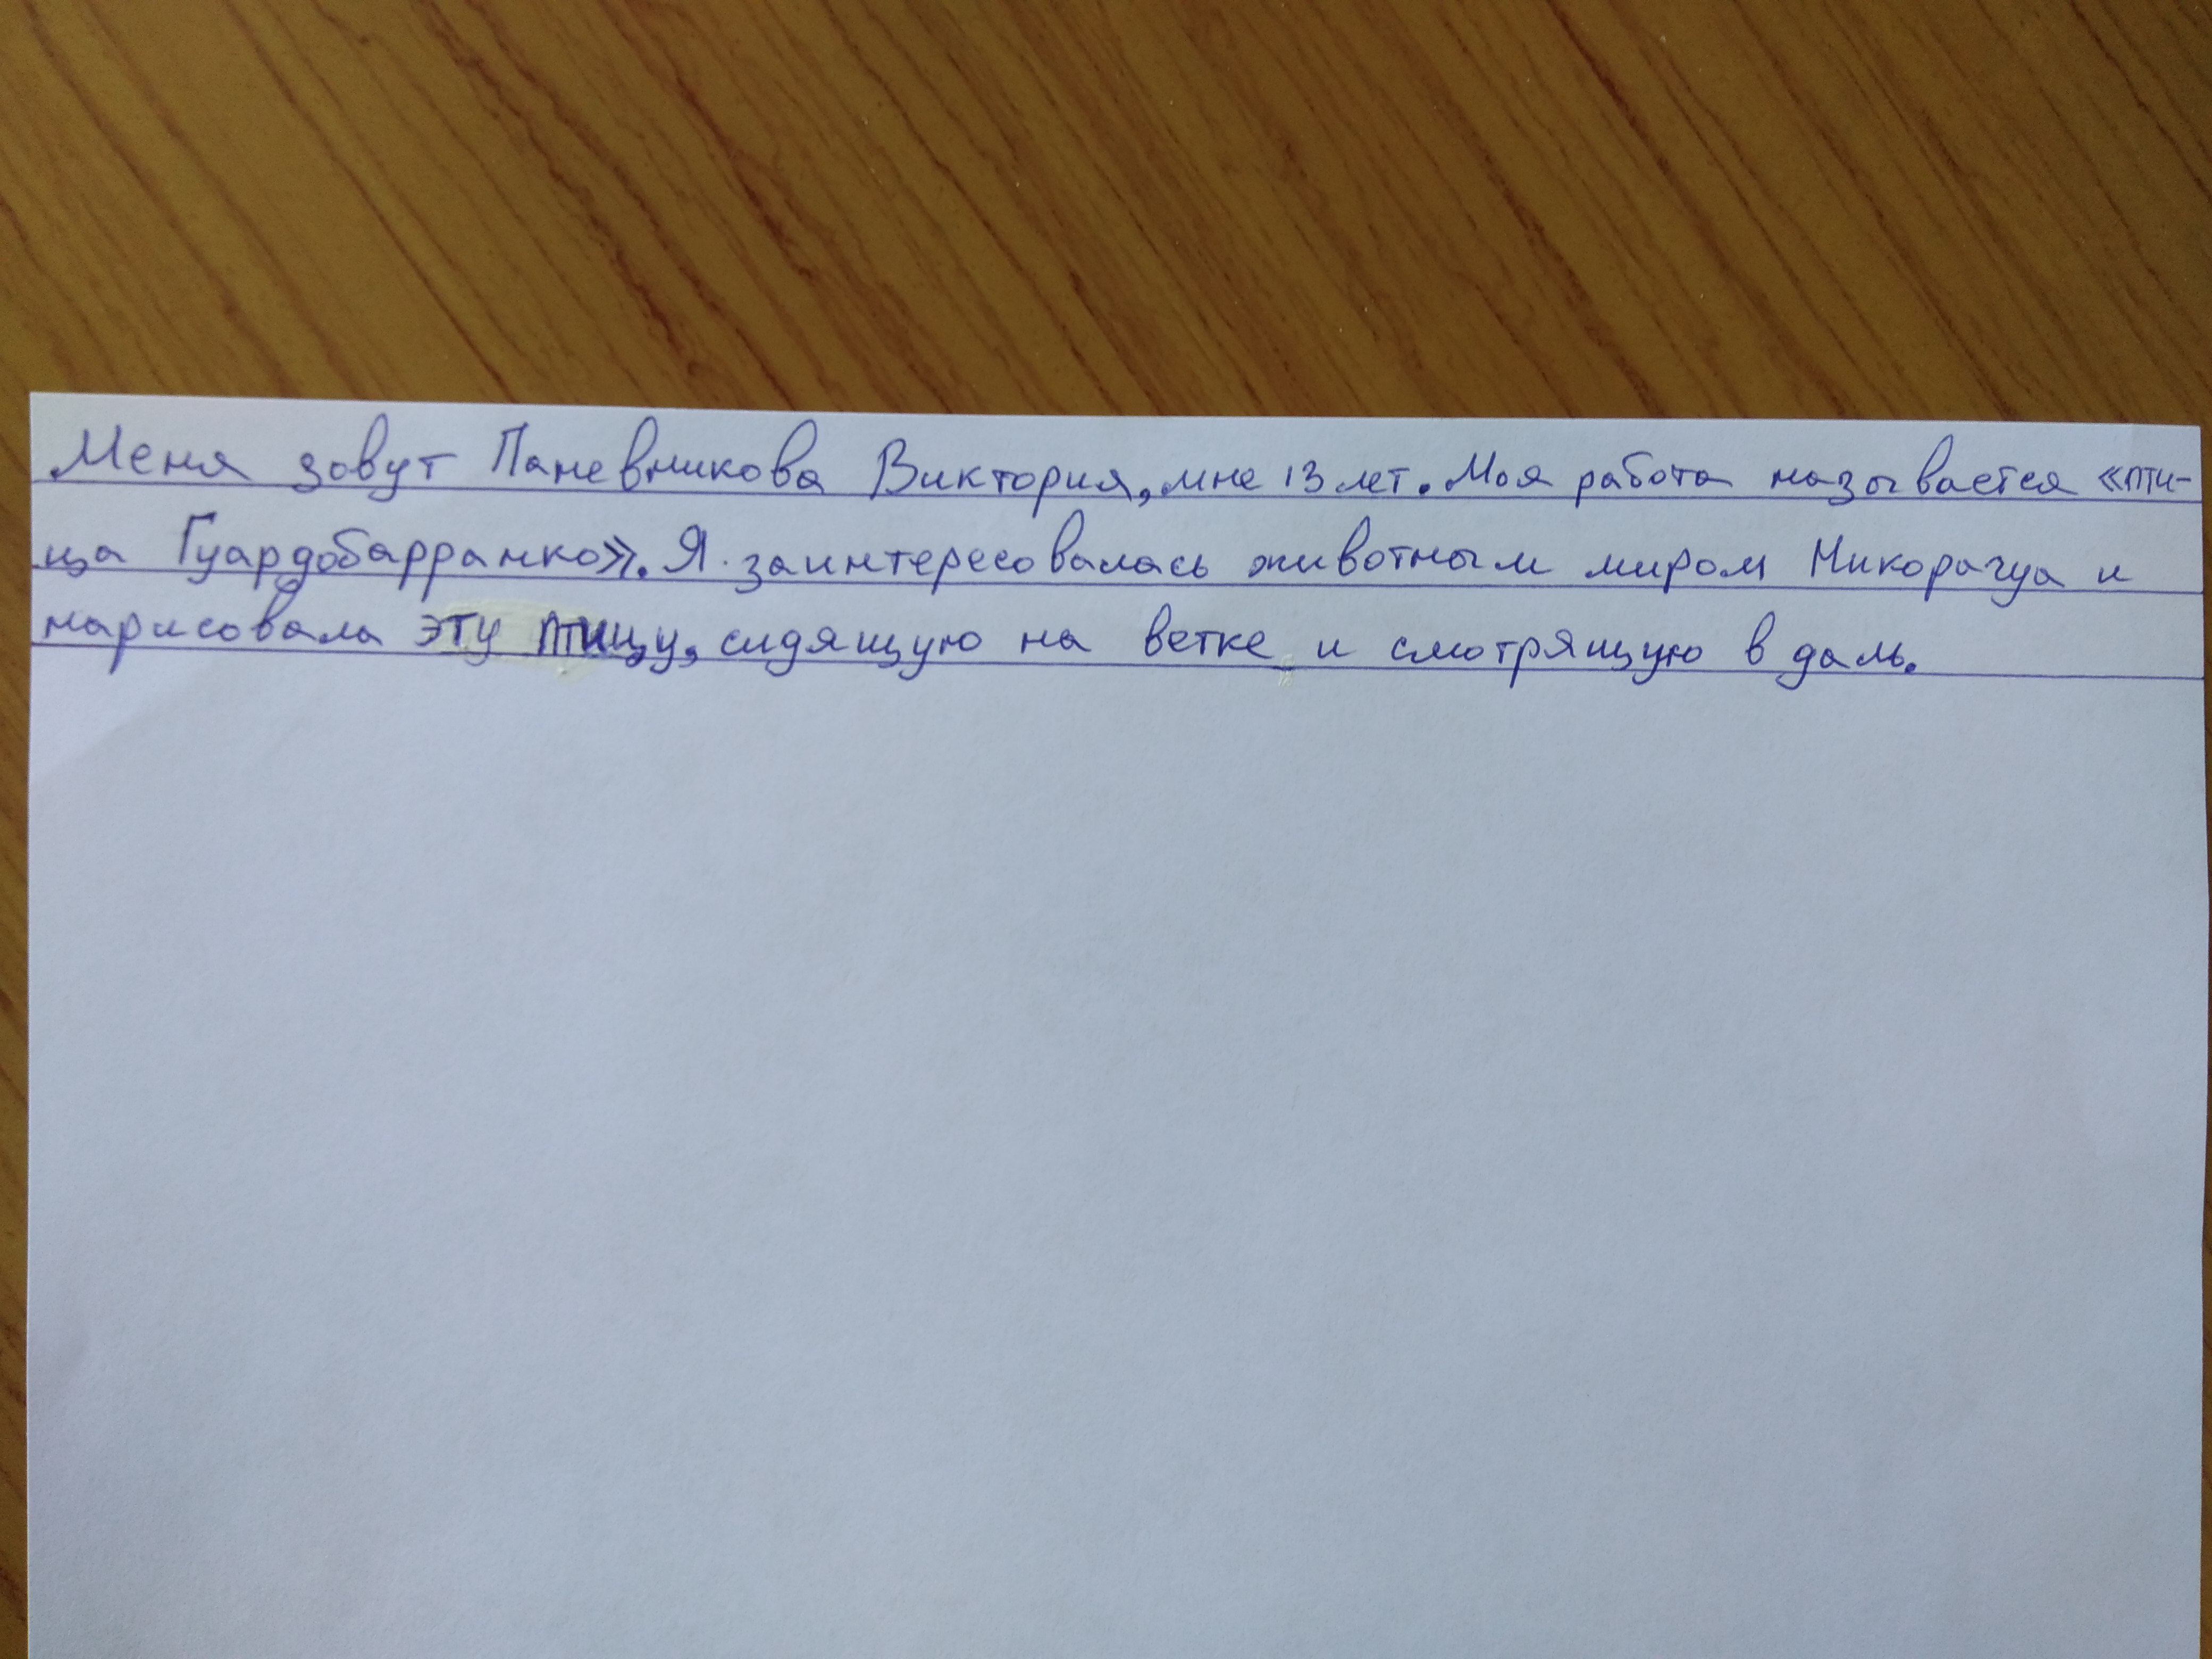 Меня зовут Паневникова Виктория, мне 13 лет. Моя работа называется «пти-
ца Гуардобарранко». Я заинтересовалась животным миром Никорагуа и
нарисовала эту птицу, сидящую на ветке и смотрящую в даль.